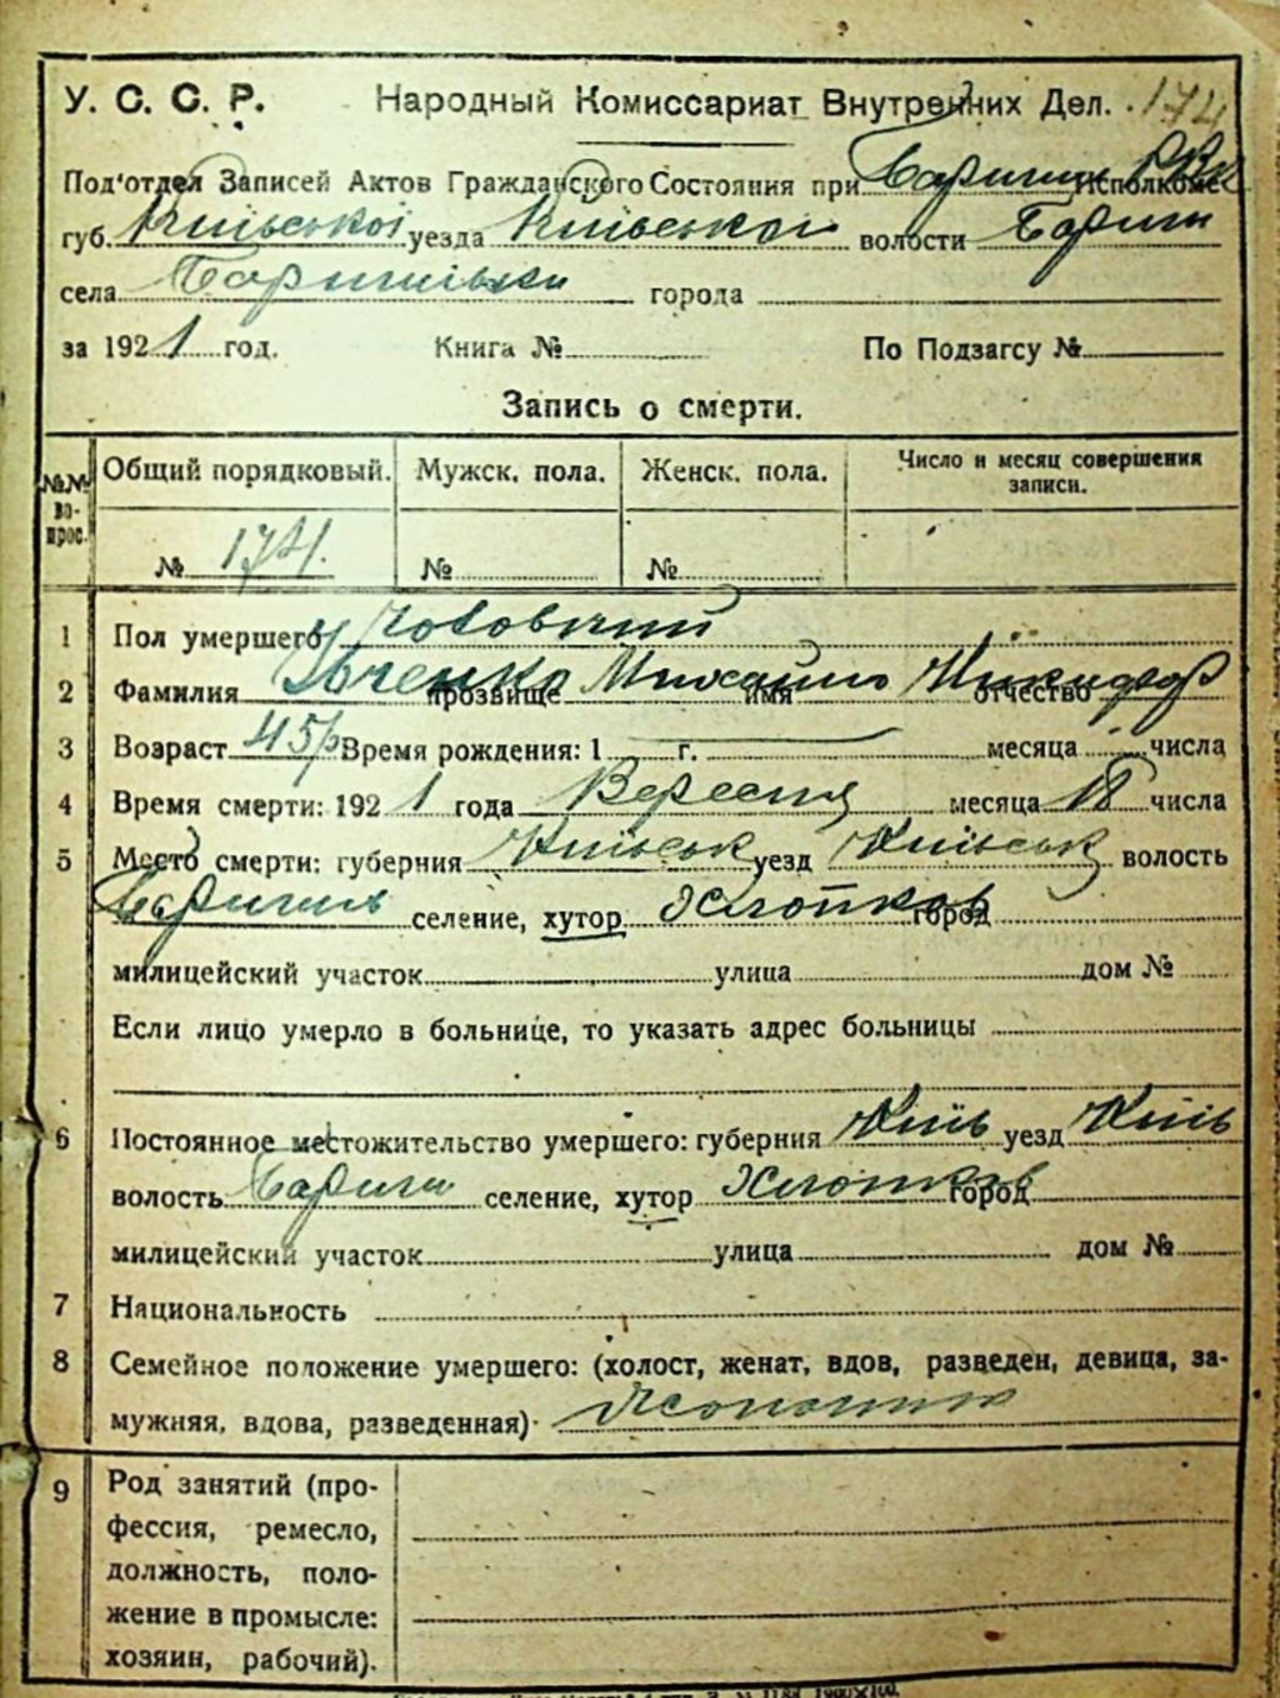 У. С. С. Р. Народный Комиссариат Внутренних Дел. 174
Под'отдел Записей Актов Гражданского Состояния при Бариш РВК Исполкоме
губ. Київської уезда Київської волости Бариш
села Баришівки города
за 1921 год. Книга № По Подзагсу №
Запись о смерти.
№№ во- прос. Общий порядковый. Мужск. пола. Женск. пола. Число и месяц совершения записи.
№ 174. № №
1 Пол умершего Чоловічий
2 Фамилия Івченко прозвище Михайло имя Никифор отчество
3 Возраст 45р Время рождения: 1 г. месяца числа
4 Время смерти: 1921 года Вересня месяца 18 числа
5 Место смерти: губерния Київськ уезд Київськ волость
Баришів селение, хутор Хлопков город
милицейский участок улица дом №
Если лицо умерло в больнице, то указать адрес больницы
6 Постоянное местожительство умершего: губерния Київ уезд Київ
волость Бариш селение, хутор Хлопков город
милицейский участок улица дом №
7 Национальность
8 Семейное положение умершего: (холост, женат, вдов, разведен, девица, за-
мужняя, вдова, разведенная)
9 Род занятий (про-
фессия, ремесло,
должность, поло-
жение в промысле:
хозяин, рабочий).